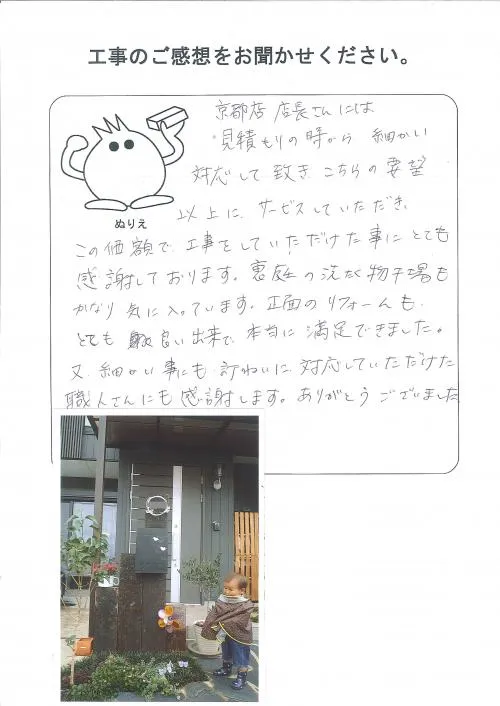 工事のご感想をお聞かせください。
京都店 店長さんには
見積もりの時から 細かい
対応して致き こちらの要望
ぬりえ
以上に、サービスしていただき、
この価額で、工事をしていただけた事に とても
感謝しております。裏庭の洗たく物干場も
かなり 気に入っています。正面のリフォームも、
とても 良い出来で 本当に 満足できました。
又 細かい事にも ていねいに 対応していただけた
職人さんにも 感謝します。ありがとうございました